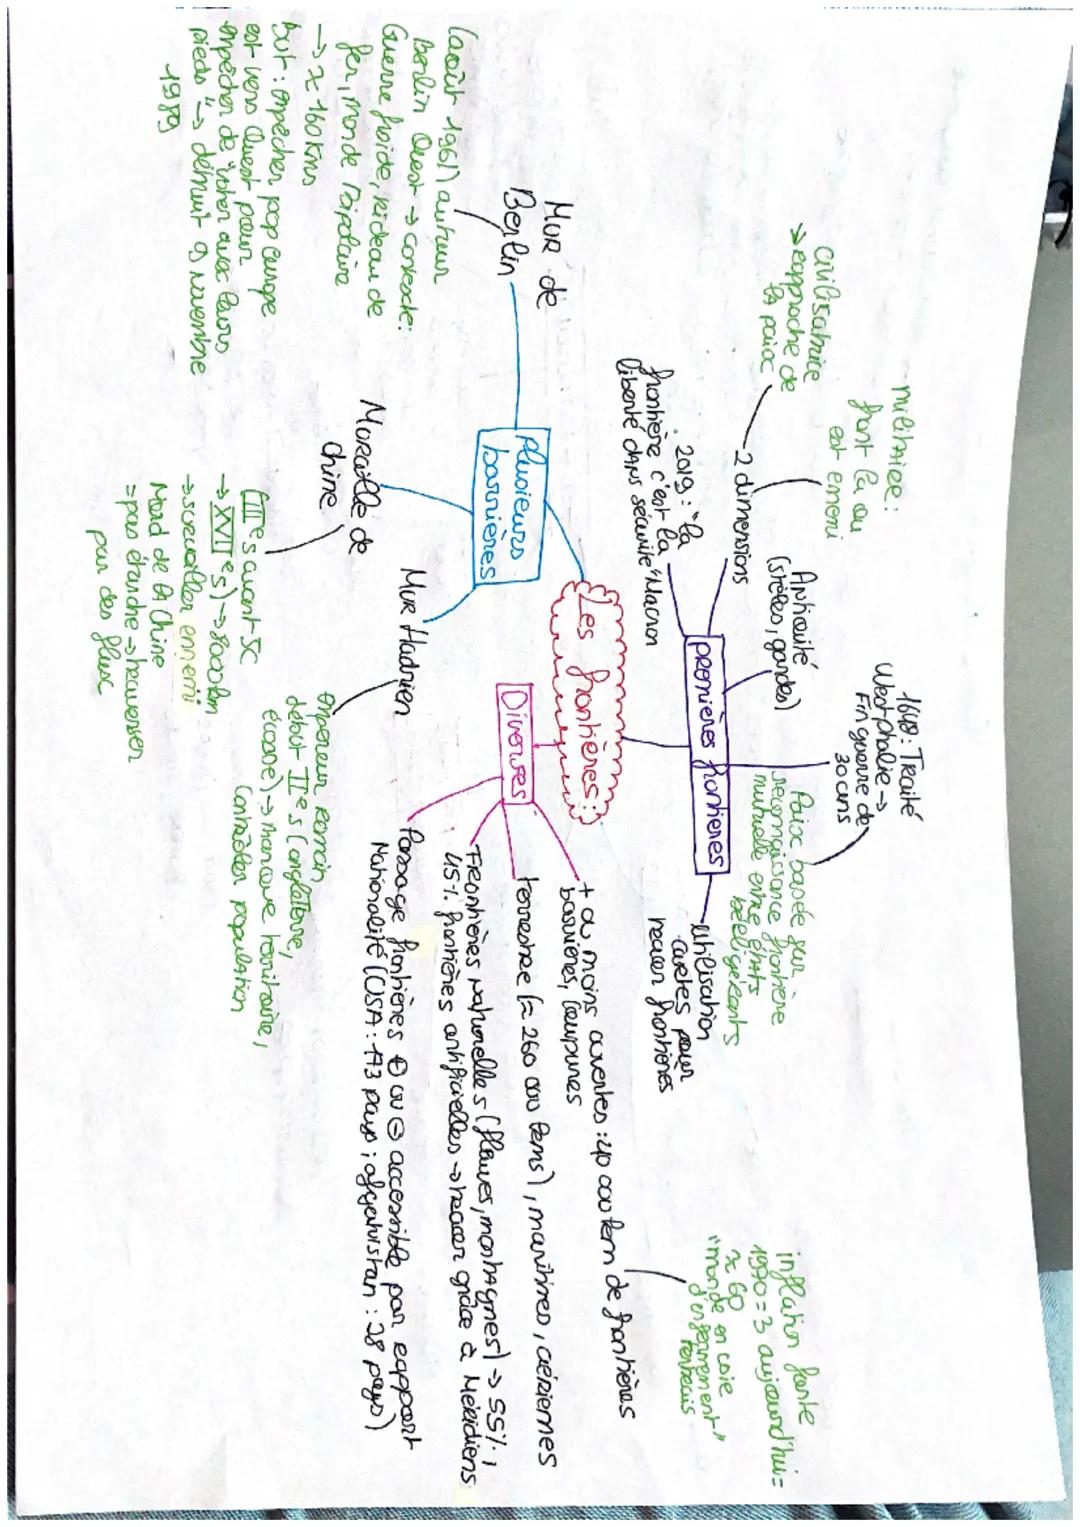 Les frontières:
premières frontieres
militaire:
front là où
est ennemi
civilisatrice
→ rapproche de
la paix
2 dimensions
2019: "la
frontière c'est la
liberté dans sécurité" Macron
Antiquité
(stèles, gardes)
1648: Traité
Westphalie →
Fin guerre de
30 ans
Paix basée sur
reconnaissance frontière
mutuelle entre états
belligérants
utilisation
cartes pour
tracer frontières
Diverses
+ ou moins ouvertes: 40 000 km de frontières
barrières, coupures
inflation forte
1990 = 3 aujourd'hui =
≈ 60
"monde en voie
d'enfermement"
terrestre (≈ 260 000 kms), maritimes, aériennes
Frontières naturelles (fleuves, montagnes) → 55%
45% frontières artificielles → tracer grâce à Méridiens
Passage frontières ⊕ ou ⊖ accessible par rapport
Nationalité (USA: 173 pays; afghanistan: 28 pays)
plusieurs
barrières
Mur de
Berlin
(août 1961) autour
Berlin Ouest → contexte:
Guerre froide, rideau de
fer, monde bipolaire
→ ≈ 160 kms
But: empêcher pop europe
est vers Ouest pour
empêcher de "voter avec leurs
pieds" → détruit 9 novembre
1989
Muraille de
chine
(IIIe s avant JC
→ XVIIe s) → 8000 km
→ surveiller ennemi
Nord de la Chine
= pas étanche → traverser
par des flux
Mur Hadrien
empereur romain
début IIe s (angleterre,
écosse) → marque territoire,
contrôler population